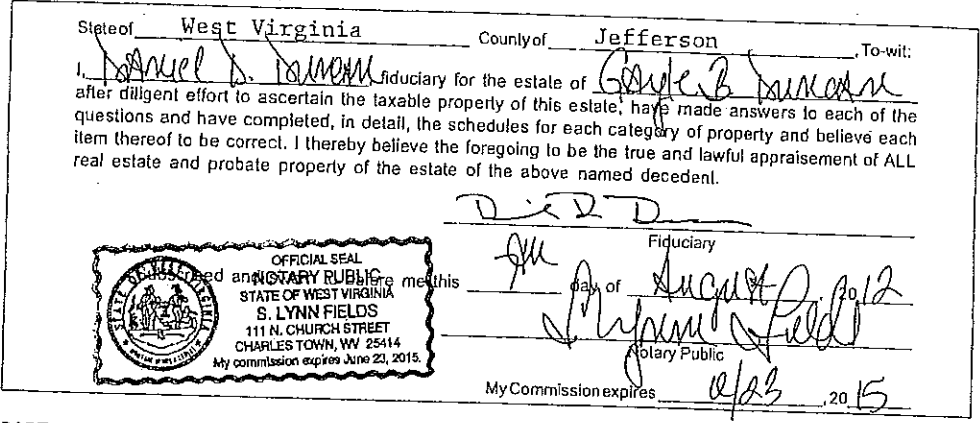 State of West Virginia County of Jefferson , To-wit:
I, Daniel D. Duncan fiduciary for the estate of Gayle B Duncan
after diligent effort to ascertain the taxable property of this estate, have made answers to each of the
questions and have completed, in detail, the schedules for each category of property and believe each
item thereof to be correct. I thereby believe the foregoing to be the true and lawful appraisement of ALL
real estate and probate property of the estate of the above named decedent.
Fiduciary
Subscribed and before me this day of August , 2012
OFFICIAL SEAL
NOTARY PUBLIC
STATE OF WEST VIRGINIA
S. LYNN FIELDS
111 N. CHURCH STREET
CHARLES TOWN, WV 25414
My commission expires June 23, 2015.
STATE OF WEST VIRGINIA
S. Lynn Fields
Notary Public
My Commission expires 6/23 , 20 15